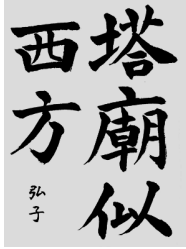 塔廟似
西方
弘子